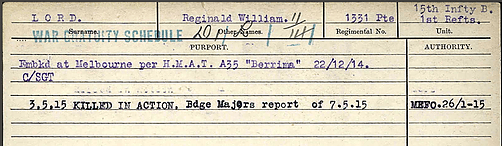 15th Infty B.
L O R D. Reginald William. 1331 Pte 1st Refts.
Surname. Other Names. Regimental No. Unit.
WAR GRATUITY SCHEDULE
PURPORT. AUTHORITY.
Embkd at Melbourne per H.M.A.T. A35 "Berrima" 22/12/14.
C/SGT
3.5.15 KILLED IN ACTION, Bdge Majors report of 7.5.15 MEFO.26/1-15